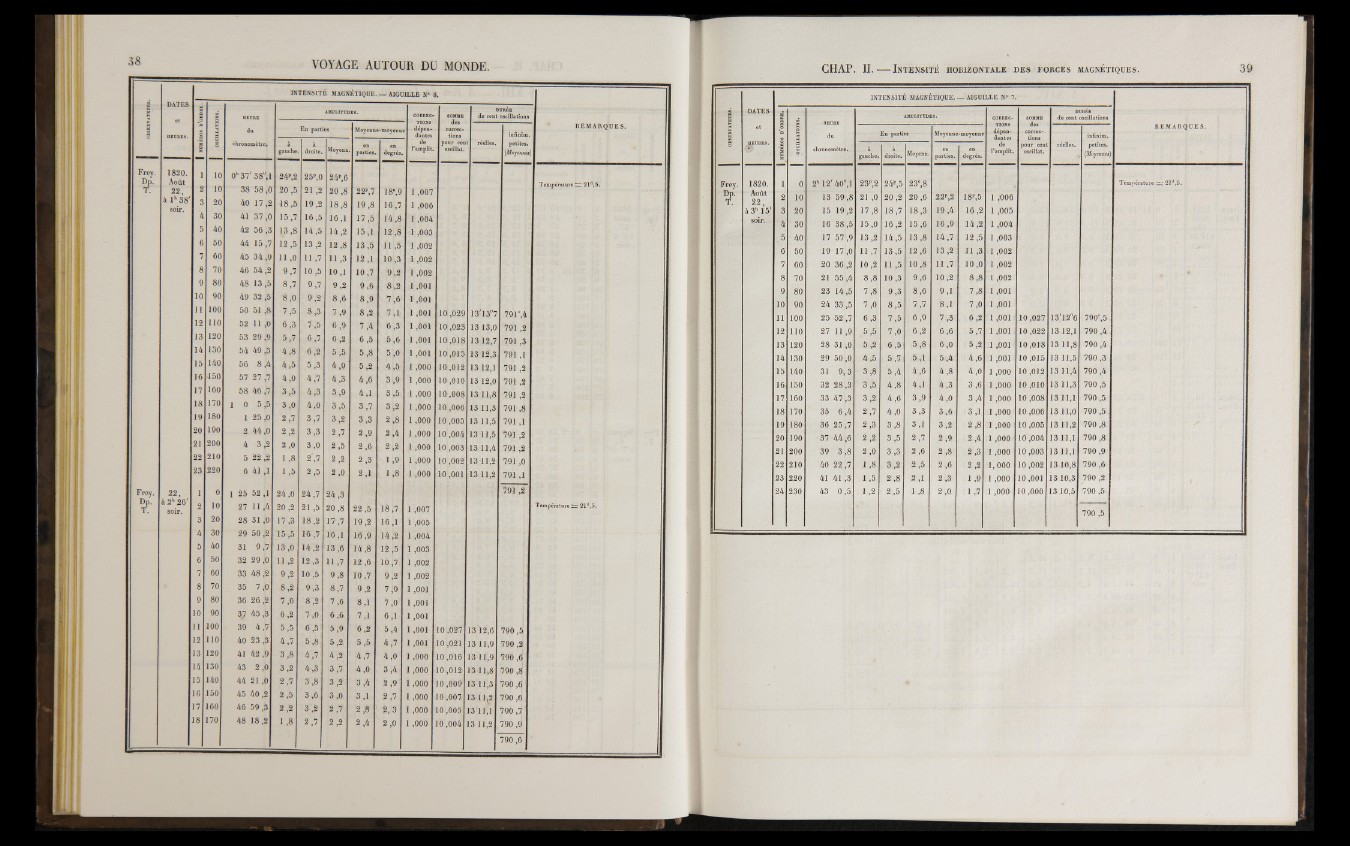 38
VOYAGE AUTOUR DU MONDE.
INTENSITÉ MAGNÉTIQUE. — AIGUILLE N° 8.
OBSERVATEURS. DATES et HEURES. NUMÉROS D'ORDRE. OSCILLATIONS. HEURE du chronomètre. AMPLITUDES. En parties à gauche. à droite. Moyenn. Moyenne-moyenne en parties. en degrés. CORRECTIONS dépendantes de l'amplit. SOMME des corrections pour cent oscillat. DURÉE de cent oscillations réelles. infinim. petites. (Moyenne) REMARQUES.
Frey. Dp. T. 1820. Août 22, à 1h 38' soir.
Température = 21°,5.
1 10 0h 37' 38",1 24p,2 25p,0 24p,6
2 10 38 58,0 20,5 21,2 20,8 22p,7 18°,9 1,007
3 20 40 17,2 18,5 19,2 18,8 19,8 16,7 1,006
4 30 41 37,0 15,7 16,5 16,1 17,5 14,8 1,004
5 40 42 56,3 13,8 14,5 14,2 15,1 12,8 1,003
6 50 44 15,7 12,5 13,2 12,8 13,5 11,5 1,002
7 60 45 34,9 11,0 11,7 11,3 12,1 10,3 1,002
8 70 46 54,2 9,7 10,5 10,1 10,7 9,2 1,002
9 80 48 13,5 8,7 9,7 9,2 9,6 8,2 1,001
10 90 49 32,5 8,0 9,2 8,6 8,9 7,6 1,001
11 100 50 51,8 7,5 8,3 7,9 8,2 7,1 1,001 10,029 13'13"7 791",4
12 110 52 11,0 6,3 7,5 6,9 7,4 6,3 1,001 10,023 13 13,0 791,2
13 120 53 29,9 5,7 6,7 6,2 6,5 5,6 1,001 10,018 13 12,7 791,3
14 130 54 49,3 4,8 6,2 5,5 5,8 5,0 1,001 10,015 13 12,3 791,1
15 140 56 8,4 4,5 5,3 4,9 5,2 4,5 1,000 10,012 13 12,1 791,2
16 150 57 27,7 4,0 4,7 4,3 4,6 3,9 1,000 10,010 13 12,0 791,2
17 160 58 46,7 3,5 4,3 3,9 4,1 3,5 1,000 10,008 13 11,8 791,2
18 170 1 0 5,5 3,0 4,0 3,5 3,7 3,2 1,000 10,006 13 11,5 791,8
19 180 1 25,0 2,7 3,7 3,2 3,3 2,8 1,000 10,005 13 11,5 791,1
20 190 2 44,0 2,2 3,3 2,7 2,9 2,4 1,000 10,004 13 11,5 791,2
21 200 4 3,2 2,0 3,0 2,5 2,6 2,2 1,000 10,003 13 11,4 791,2
22 210 5 22,2 1,8 2,7 2,2 2,3 1,9 1,000 10,002 13 11,2 791,0
23 220 6 41,1 1,5 2,5 2,0 2,1 1,8 1,000 10,001 13 11,2 791,1
791,2
Frey. Dp. T. 22, à 2h 26' soir.
Température = 21°,5.
1 0 1 25 52,1 24,0 24,7 24,3
2 10 27 11,4 20,2 21,5 20,8 22,5 18,7 1,007
3 20 28 31,0 17,3 18,2 17,7 19,2 16,1 1,005
4 30 29 50,2 15,5 16,7 16,1 16,9 14,2 1,004
5 40 31 9,7 13,0 14,2 13,6 14,8 12,5 1,003
6 50 32 29,0 11,2 12,3 11,7 12,6 10,7 1,002
7 60 33 48,2 9,2 10,5 9,8 10,7 9,2 1,002
8 70 35 7,0 8,2 9,3 8,7 9,2 7,9 1,001
9 80 36 26,2 7,0 8,2 7,6 8,1 7,0 1,001
10 90 37 45,3 6,2 7,0 6,6 7,1 6,1 1,001
11 100 39 4,7 5,5 6,5 5,9 6,2 5,4 1,001 10,027 13 12,6 790,5
12 110 40 23,3 4,7 5,8 5,2 5,5 4,7 1,001 10,021 13 11,9 790,2
13 120 41 42,9 3,8 4,7 4,2 4,7 4,0 1,000 10,016 13 11,9 790,6
14 130 43 2,0 3,2 4,3 3,7 4,0 3,4 1,000 10,012 13 11,8 790,8
15 140 44 21,0 2,7 3,8 3,2 3,4 2,9 1,000 10,009 13 11,3 790,6
16 150 45 40,2 2,5 3,6 3,0 3,1 2,7 1,000 10,007 13 11,2 790,6
17 160 46 59,3 2,2 3,2 2,7 2,8 2,3 1,000 10,005 13 11,1 790,7
18 170 48 18,2 1,8 2,7 2,2 2,4 2,0 1,000 10,004 13 11,2 790,9
790,6
CHAP. II. — INTENSITÉ HORIZONTALE DES FORCES MAGNÉTIQUES.
39
INTENSITÉ MAGNÉTIQUE. — AIGUILLE N° 7.
OBSERVATEURS. DATES et HEURES. NUMÉROS D'ORDRE. OSCILLATIONS. HEURE du chronomètre. AMPLITUDES. En parties à gauche. à droite. Moyenn. Moyenne-moyenne en parties. en degrés. CORRECTIONS dépendantes de l'amplit. SOMME des corrections pour cent oscillat. DURÉE de cent oscillations réelles. infinim. petites. (Moyenne) REMARQUES.
Frey. Dp. T. 1820. Août 22, à 3h 15' soir.
Température = 21°,5.
1 0 2h 12' 40",1 23p,2 24p,5 23p,8
2 10 13 59,8 21,0 20,2 20,6 22p,2 18°,5 1,006
3 20 15 19,2 17,8 18,7 18,3 19,4 16,2 1,005
4 30 16 38,5 15,0 16,2 15,6 16,9 14,2 1,004
5 40 17 57,9 13,2 14,5 13,8 14,7 12,5 1,003
6 50 19 17,0 11,7 13,5 12,6 13,2 11,3 1,002
7 60 20 36,2 10,2 11,5 10,8 11,7 10,0 1,002
8 70 21 55,4 8,8 10,3 9,6 10,2 8,8 1,002
9 80 23 14,5 7,8 9,3 8,6 9,1 7,8 1,001
10 90 24 33,5 7,0 8,5 7,7 8,1 7,0 1,001
11 100 25 52,7 6,3 7,5 6,9 7,3 6,2 1,001 10,027 13'12"6 790",5
12 110 27 11,9 5,5 7,0 6,2 6,6 5,7 1,001 10,022 13 12,1 790,4
13 120 28 31,0 5,2 6,5 5,8 6,0 5,2 1,001 10,018 13 11,8 790,4
14 130 29 50,0 4,5 5,7 5,1 5,4 4,6 1,001 10,015 13 11,5 790,3
15 140 31 9,3 3,8 5,4 4,6 4,8 4,0 1,000 10,012 13 11,4 790,4
16 150 32 28,3 3,5 4,8 4,1 4,3 3,6 1,000 10,010 13 11,3 790,5
17 160 33 47,3 3,2 4,6 3,9 4,0 3,4 1,000 10,008 13 11,1 790,5
18 170 35 6,4 2,7 4,0 3,3 3,6 3,1 1,000 10,006 13 11,0 790,5
19 180 36 25,7 2,3 3,8 3,1 3,2 2,8 1,000 10,005 13 11,2 790,8
20 190 37 44,6 2,2 3,5 2,7 2,9 2,4 1,000 10,004 13 11,1 790,8
21 200 39 3,8 2,0 3,3 2,6 2,8 2,3 1,000 10,003 13 11,1 790,9
22 210 40 22,7 1,8 3,2 2,5 2,6 2,2 1,000 10,002 13 10,8 790,6
23 220 41 41,3 1,5 2,8 2,1 2,3 1,9 1,000 10,001 13 10,3 790,2
24 230 43 0,5 1,2 2,5 1,8 2,0 1,7 1,000 10,000 13 10,5 790,5
790,5